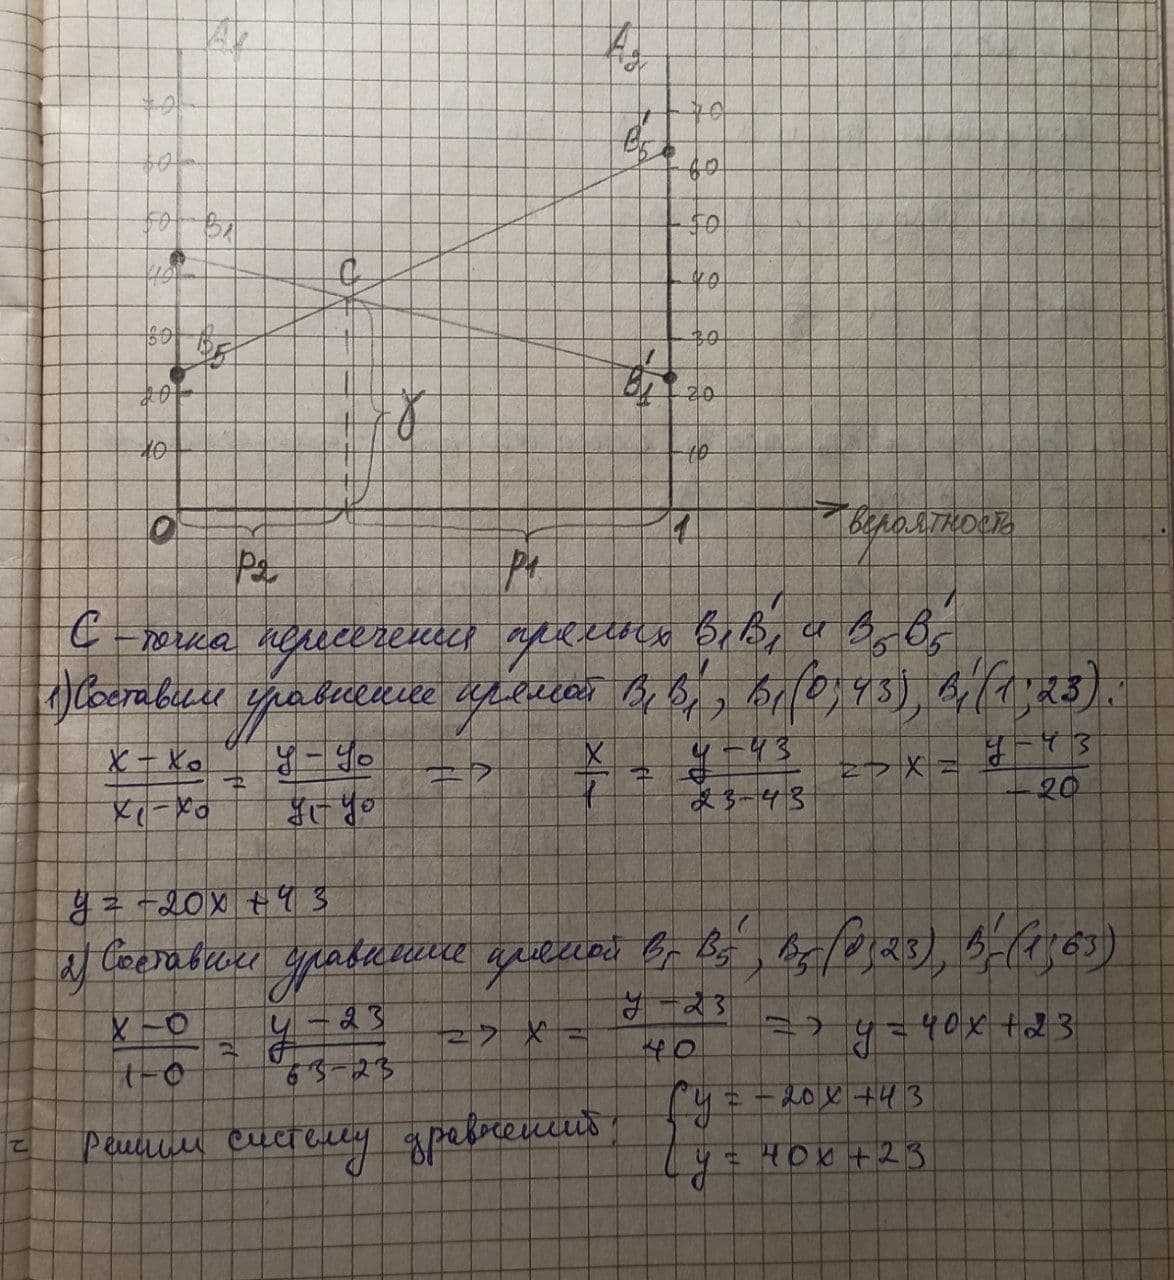 A1 A2
70 70
B5'
60 60
50 B1 50
40 C 40
30 B5 30
B1'
20 20
γ
10 10
0 1 вероятность
P2 P1
C – точка пересечения прямых B1B1' и B5B5'
1) Составим уравнение прямой B1B1', B1(0;43), B1'(1;23):
(x-x0)/(x1-x0) = (y-y0)/(y1-y0) => x/1 = (y-43)/(23-43) => x = (y-43)/(-20)
y = -20x+43
2) Составим уравнение прямой B5B5', B5(0;23), B5'(1;63)
(x-0)/(1-0) = (y-23)/(63-23) => x = (y-23)/40 => y = 40x+23
= Решим систему уравнений: { y = -20x+43
y = 40x+23